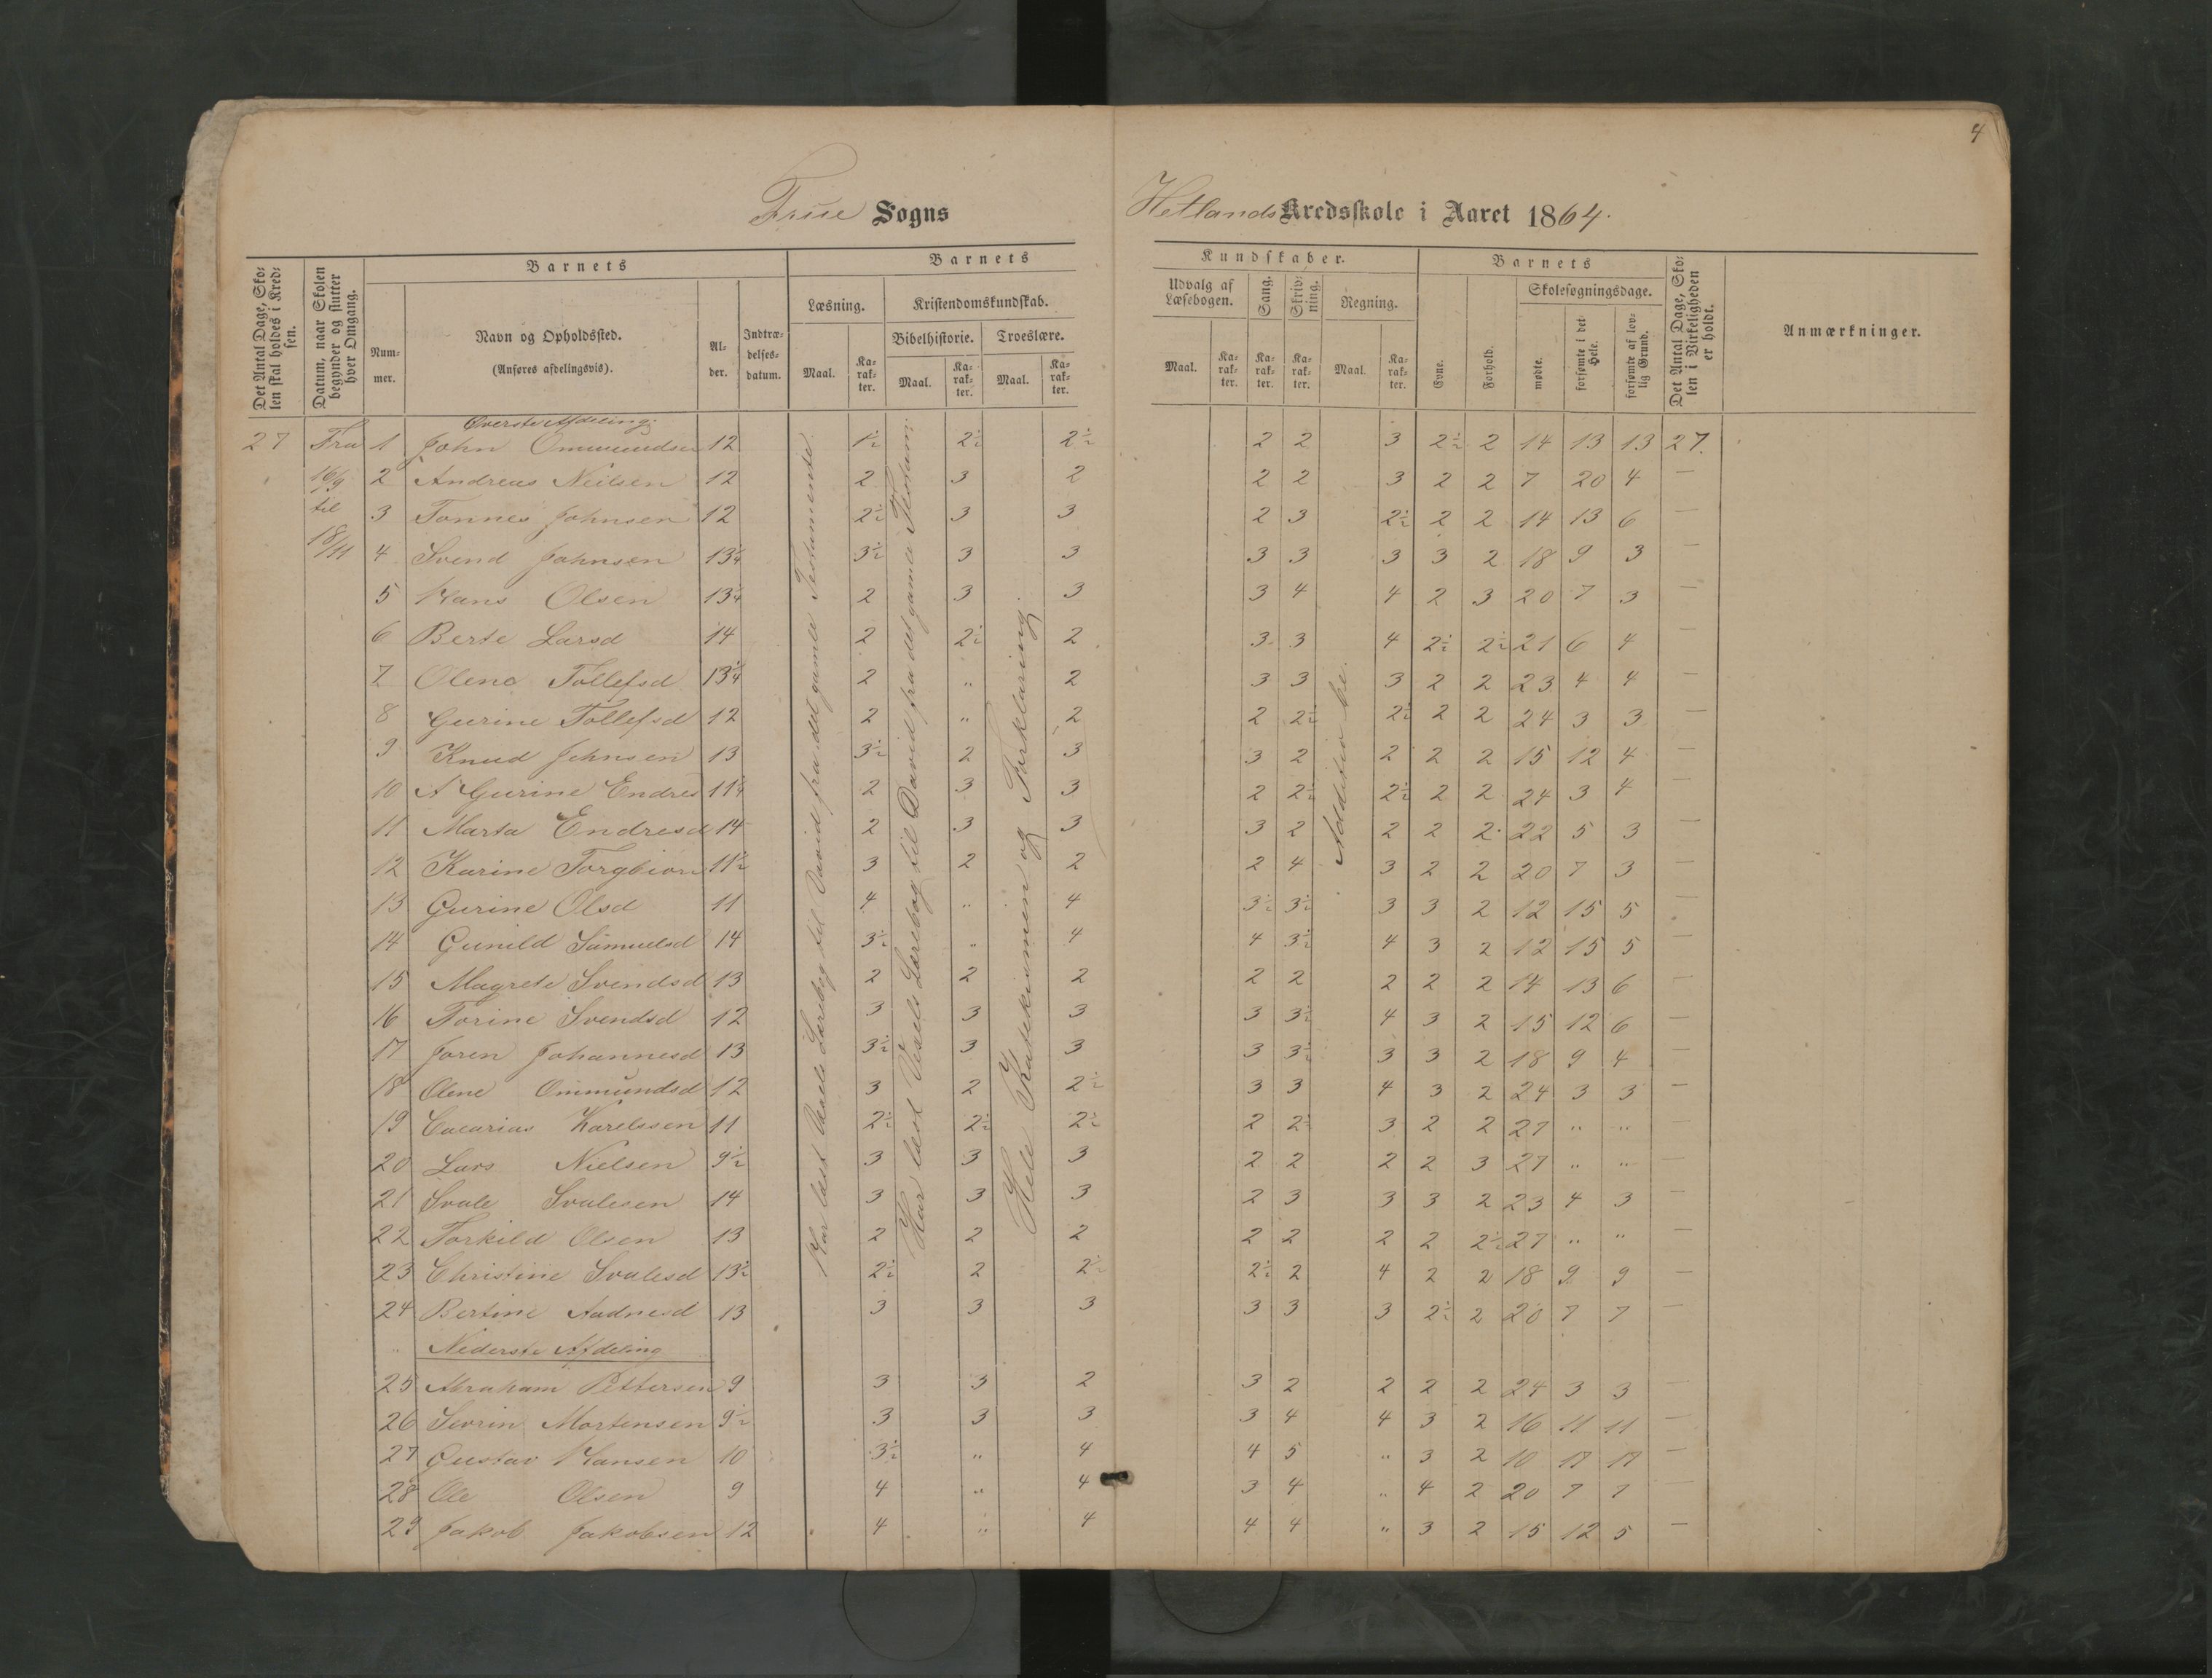 4
Frue Sogns Hetlands Kredsskole i Aaret 1864.
Det Antal Dage, Skolen skal holdes i Kredsen.
Datum, naar Skolen begynder og slutter hver Omgang.
Barnets
Nummer.
Navn og Opholdssted.
(Anføres afdelingsvis).
Alder.
Indtrædelsesdatum.
Barnets Kundskaber.
Læsning.
Maal. Karakter.
Kristendomskundskab.
Bibelhistorie. Troeslære.
Maal. Karakter. Maal. Karakter.
Udvalg af Læsebogen.
Maal. Karakter.
Sang. Karakter.
Skrivning. Karakter.
Regning.
Maal. Karakter.
Barnets
Evne. Forhold.
Skolesøgningsdage.
mødte. forsømte i det Hele. forsømte af lovlig Grund.
Det Antal Dage, Skolen i Virkeligheden er holdt.
Anmærkninger.
Øverste Afdeling:
27 Fra 1 John Ommundsen 12 1½ 2½ 2½ 2 2 3 2½ 2 14 13 13 27.
16/9 2 Andreas Neilsen 12 2 3 2 2 2 3 2 2 7 20 4 —
til 3 Tonnes Johnsen 12 2½ 3 3 2 3 2½ 2 2 14 13 6 —
18/11 4 Svend Johnsen 13¼ 3½ 3 3 3 3 3 3 2 18 9 3 —
5 Hans Olsen 13¼ 2 3 3 3 4 4 2 3 20 7 3 —
6 Berte Larsd 14 2 2½ 2 3 3 4 2½ 2½ 21 6 4 —
7 Olene Tollefsd 13¼ 2 " 2 3 3 3 2 2 23 4 4 —
8 Gurine Tollefsd 12 2 " 2 2 2½ 2½ 2 2 24 3 3 —
9 Knud Johnsen 13 3½ 2 3 3 2 2 2 2 15 12 4 —
10 A Gurine Endres 11¼ 2 3 3 2 2½ 2½ 2 2 24 3 4 —
11 Marta Endresd 14 2 3 3 3 2 2 2 2 22 5 3 —
12 Karine Torgbiørn 11½ 3 2 2 2 4 3 2 2 20 7 3 —
13 Gurine Olsd 11 4 " 4 3½ 3½ 3 3 2 12 15 5 —
14 Gunild Samuelsd 14 3½ " 4 4 3½ 4 3 2 12 15 5 —
15 Magrete Svendsd 13 2 2 2 2 2 2 2 2 14 13 6 —
16 Torine Svendsd 12 3 3 3 3 3½ 4 3 2 15 12 6 —
17 Joren Johannesd 13 3½ 3 3 3 3½ 3 3 2 18 9 4 —
18 Olene Ommundsd 12 3 2 2½ 3 3 4 3 2 24 3 3 —
19 Cacarias Karelssen 11 2½ 2½ 2½ 2 2½ 3 2 2 27 " " —
20 Lars Nielsen 9½ 3 3 3 2 2 2 2 3 27 " " —
21 Svale Svalesen 14 3 3 3 2 3 3 3 2 23 4 3 —
22 Torkild Olsen 13 2 2 2 2 2 2 2 2½ 27 " " —
23 Christine Svalesd 13½ 2½ 2 2½ 2½ 2 4 2 2 18 9 9 —
24 Bertine Aadnesd 13 3 3 3 3 3 3 2½ 2 20 7 7 —
" Nederste Afdeling
25 Abraham Pettersen 9 3 3 2 3 2 2 2 2 24 3 3 —
26 Sevrin Mortensen 9½ 3 3 3 3 4 4 3 2 16 11 11 —
27 Gustav Hansen 10 3½ " 4 4 5 " 3 2 10 17 17 —
28 Ole Olsen 9 4 " 4 3 4 " 4 2 20 7 7 —
29 Jakob Jakobsen 12 4 " 4 4 4 " 3 2 15 12 5 —
Har læst Vexels Lærebog til David fra det gamle Testamente
Har læst Vexels Lærebog til David fra det gamle Testam:
Hele Katekismen og Forklaring.